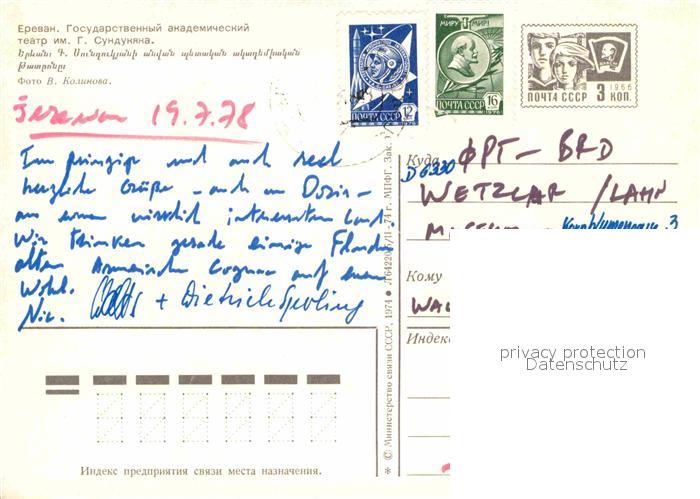 Ереван. Государственный академический
театр им. Г. Сундукяна.
Երևան: Գ. Սունդուկյանի անվան պետական ակադեմիական
թատրոնը
Фото В. Колинова.
Jerewan 19.7.78
Im Prinzip und auch sehr
herzliche Grüße - auch an Doris -
aus einem wirklich interessanten Land.
Wir trinken gerade einige Flaschen
alten Armenischen Cognac auf euer
Wohl.
+ Dietrich
ПОЧТА СССР 12
МИРУ МИР!
ПОЧТА СССР 16
1966
ПОЧТА СССР 3 КОП.
Куда ФРГ - BRD
D 6330
WETZLAR /LAHN
3
Кому
Индекс
© Министерство связи СССР, 1974
МПФГ. Зак.
Индекс предприятия связи места назначения.
privacy protection
Datenschutz